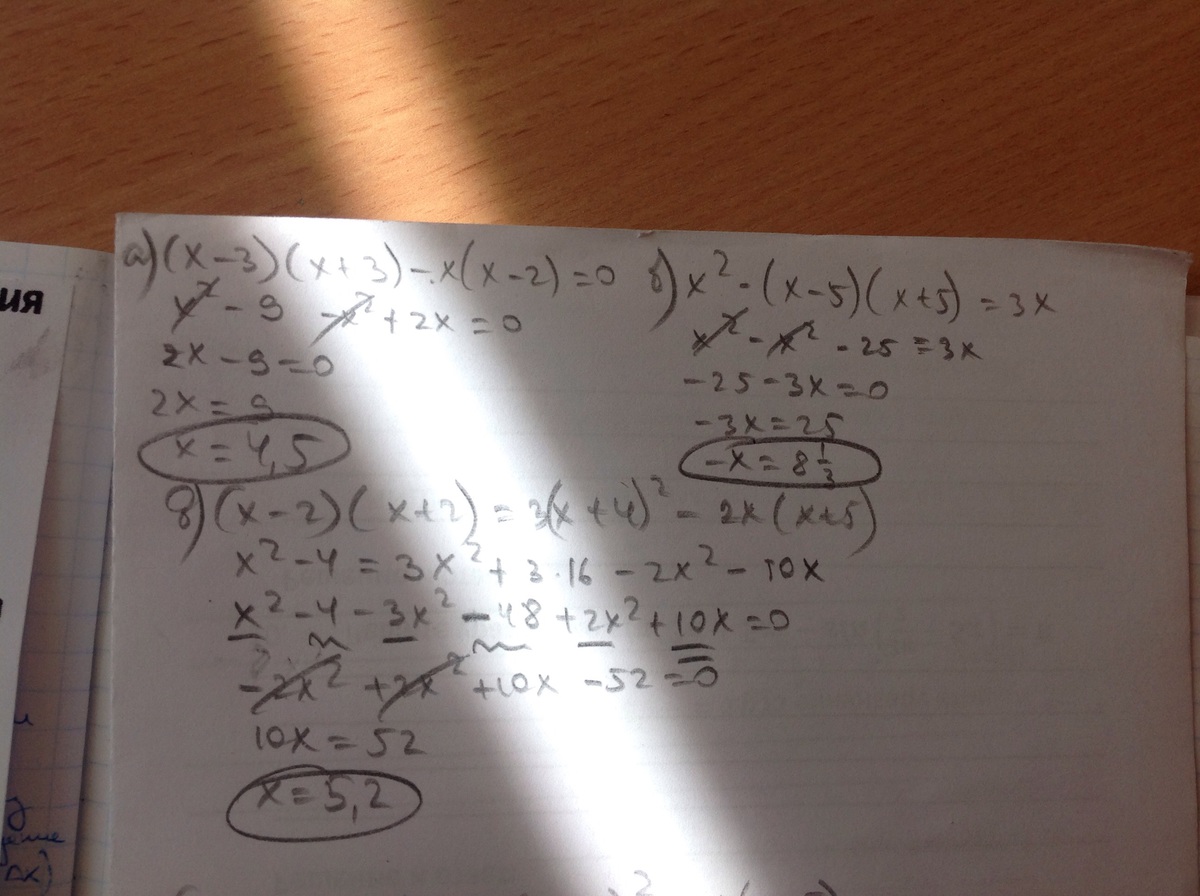 ия
а) (x-3)(x+3) - x(x-2) = 0
x² - 9 - x² + 2x = 0
2x - 9 = 0
2x = 9
x = 4,5
б) x² - (x-5)(x+5) = 3x
x² - x² - 25 = 3x
-25 - 3x = 0
-3x = 25
-x = 8 1/3
в) (x-2)(x+2) = 3(x+4)² - 2x(x+5)
x² - 4 = 3x² + 3·16 - 2x² - 10x
x² - 4 - 3x² - 48 + 2x² + 10x = 0
-2x² + 2x² + 10x - 52 = 0
10x = 52
x = 5,2